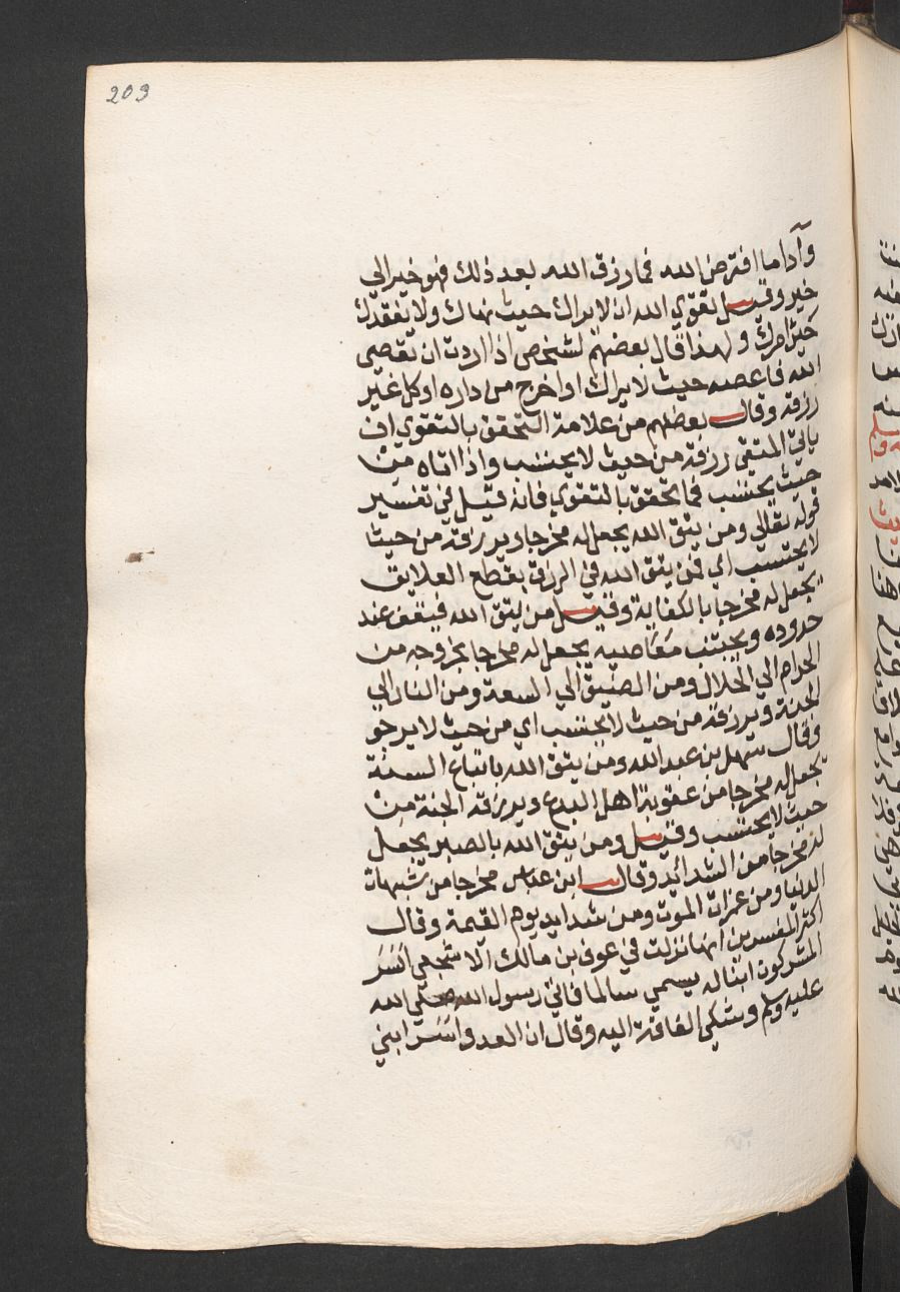 203
وآداما افترض الله فما رزق الله بعد ذلك فهو خير الي
خير وقيل تقوي الله ان لا يراك حيث نهاك ولا يفقدك
حيث امرك ولهذا قال بعضهم لشخص اذا اردت ان تعصي
الله فاعصه حيث لا يراك او اخرج من داره او كل غير
رزقه وقال بعضهم من علامة التحقق بالتقوي ان
ياتي المتقي رزقه من حيث لا يحتسب واذا اتاه من
حيث يحتسب فما تحقق بالتقوي فانه قيل في تفسير
قوله تعالي ومن يتق الله يجعل له مخرجا ويرزقه من حيث
لا يحتسب اي فمن يتق الله في الرزق بقطع العلايق
يجعل له مخرجا بالكفاية وقيل من يتق الله فيقف عند
حدوده ويجتنب معاصيه يجعل له مخرجا يخرجه من
الحرام الي الحلال ومن الضيق الي السعة ومن النار الي
الجنة ويرزقه من حيث لا يحتسب اي من حيث لا يرجو
وقال سهل بن عبد الله ومن يتق الله باتباع السنة
يجعل له مخرجا من عقوبة اهل البدع ويرزقه الجنة من
حيث لا يحتسب وقيل ومن يتق الله بالصبر يجعل
له مخرجا من الشدائد وقال ابن عباس مخرجا من شبهات
الدنيا ومن غمرات الموت ومن شدايد يوم القيمة وقال
اكثر المفسرين انها نزلت في عوف بن مالك الاشجعي اسر
المشركون ابنا له يسمي سالما فاتي رسول الله صلي الله
عليه وسلم وشكي الفاقة اليه وقال ان العدو اسر ابني